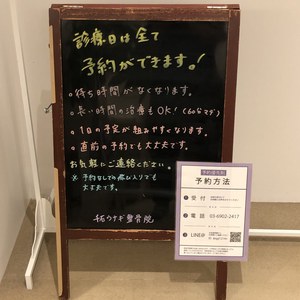 診療日は全て
予約ができます!
○待ち時間がなくなります。
○長い時間の治療もOK!(60分マデ)
○1日の予定が組みやすくなります。
○直前の予約でも大丈夫です。
お気軽にご連絡ください。
※予約なしでの飛び入りでも
大丈夫です。
整骨院
予約方法
1 受付
2 電話 03-6902-2417
3 LINE@